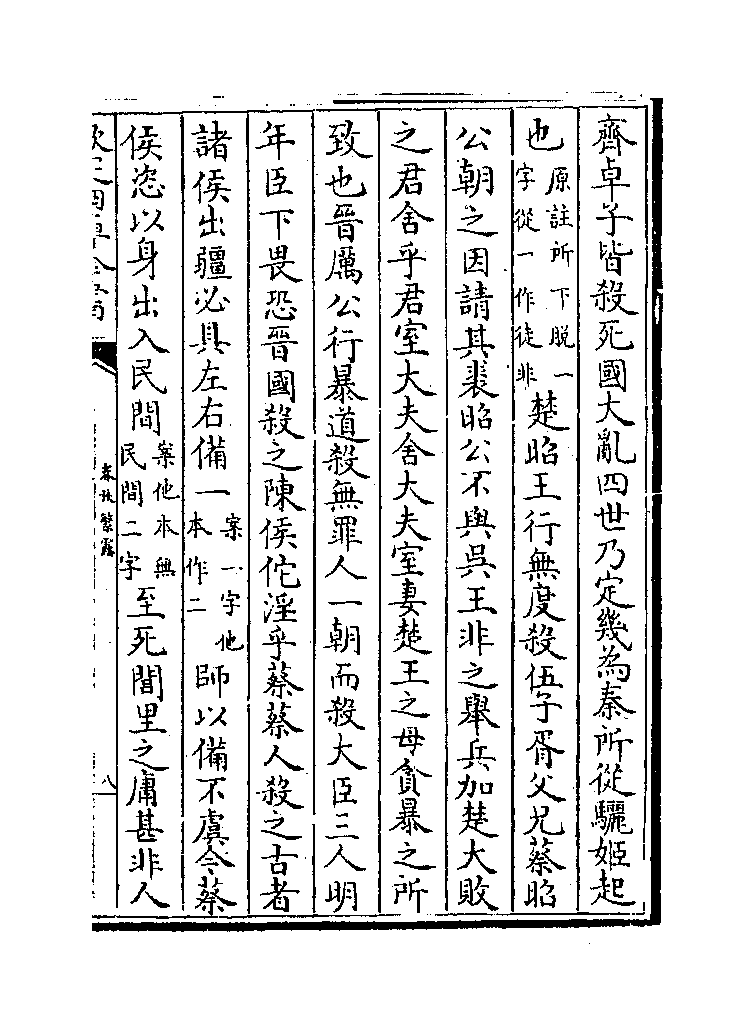 齊卓子皆殺死國大亂四世乃定幾為秦所從驪姬起
也原註所下脫一字從一作徒非楚昭王行無度殺伍子胥父兄蔡昭
公朝之因請其裘昭公不與吳王非之舉兵加楚大敗
之君舍乎君室大夫舍大夫室妻楚王之母貪暴之所
致也晉厲公行暴道殺無罪人一朝而殺大臣三人明
年臣下畏恐晉國殺之陳侯佗淫乎蔡蔡人殺之古者
諸侯出疆必具左右備一案一字他本作二師以備不虞今蔡
侯恣以身出入民間案他本無民間二字至死閭里之庸甚非人
春秋繁露
八